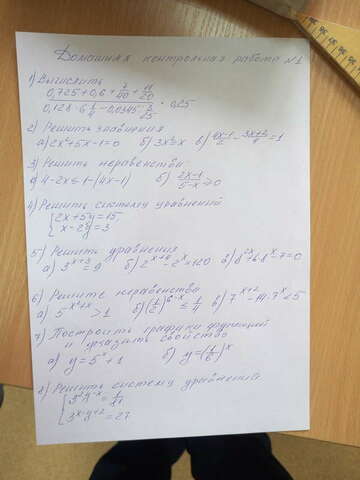 Домашняя контрольная работа №1
1) Вычислить
0,725+0,6+7/40+11/20
0,128·6 1/4-0,0345:3/25 · 0,25
2) Решить уравнения
а) 2x²+5x-1=0 б) 3x²=x в)
=1
3) Решить неравенства:
а) 4-2x≤1-(4x-1) б) 2x-1/5-x≥0
4) Решить систему уравнений
{2x+5y=15
x-2y=3
5) Решить уравнения
а) 3^x+3=9 б) 2^x+4-2^x=120 в)
-7=0
6) Решите неравенства
>1 б) (1/2)^6-x≤1/4 в) 7^x+2-14·7^x<5
7) Построить графики функций
и указать свойства
а) y=5^x+1 б) y=(1/6)^x
8) Решить систему уравнений
3^x-y+2=27